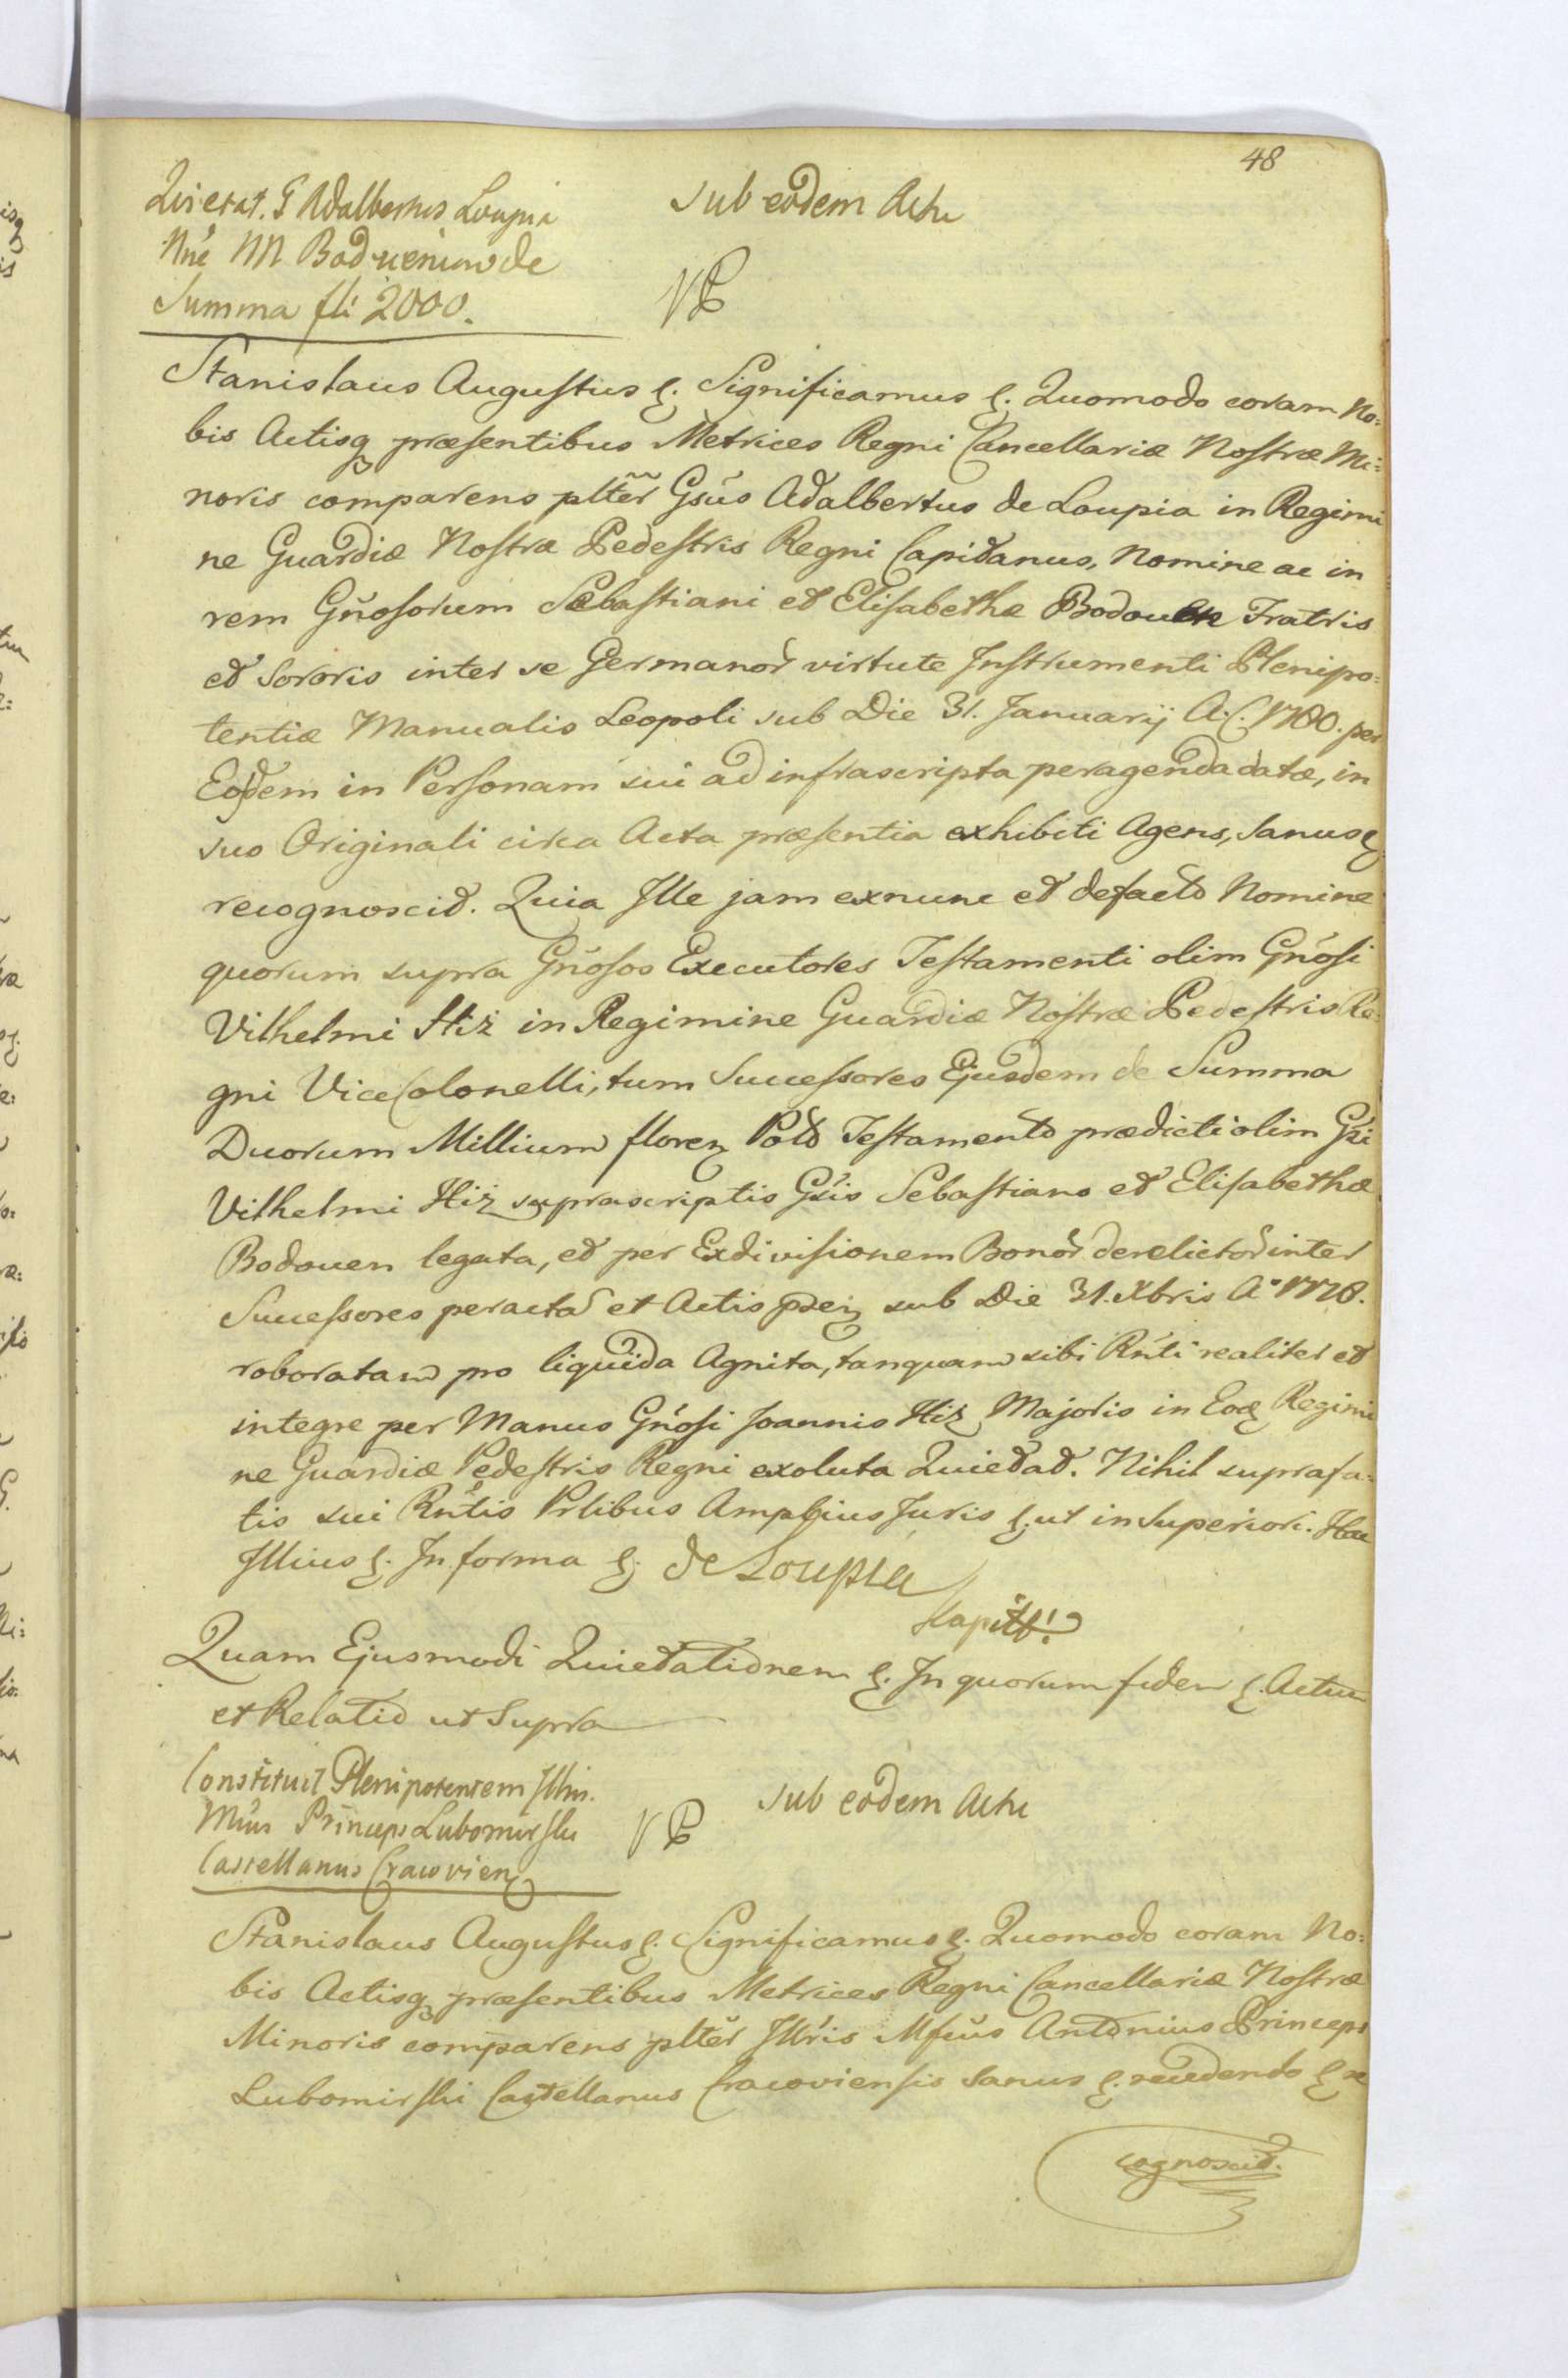 48
Quietat. G Adalbertus Loupia
Nne M Boduenium de
Summa fli 2000.
Sub eodem Actu
VP
Stanislaus Augustus &. Significamus &. Quomodo coram No=
bis Actisq præsentibus Metrices Regni Cancellariæ Nostræ Mi=
noris comparens plter Gsus Adalbertus de Loupia in Regimi
ne Guardiæ Nostræ Pedestris Regni Capitanus, Nomine ac in
rem Gnosorum Sebastiani et Elisabethæ Bodouen Fratris
et Sororis inter se Germanor virtute Instrumenti Plenipo=
tentiæ Manualis Leopoli sub Die 31. Januarij A. C. 1780. per
Eosdem in Personam sui ad infrascripta peragenda datæ, in
suo Originali circa Acta præsentia exhibiti Agens, Sanus &
recognoscit. Quia Ille jam exnunc et defacto Nomine
quorum supra Gnosos Executores Testamenti olim Gnosi
Vilhelmi Hiż in Regimine Guardiæ Nostræ Pedestris Re=
gni Vice Colonelli, tum Successores Ejusdem de Summa
Duorum Millium floren Pol Testamento prædicti olim Gsi
Vilhelmi Hiż suprascriptis Gsis Sebastiano et Elisabethæ
Bodouen legata, et per Exdivisionem Bonor derelictor inter
Successores peracta et Actis psen sub Die 31. Xbris Aº 1778.
roboratam pro liquida Agnita, tanquam sibi Rnti realiter et
integre per Manus Gnosi Joannis Hiż Majoris in Eod Regimi
ne Guardiæ Pedestris Regni exoluta Quietat. Nihil suprafa=
tis sui Rntis Prlibus Amplius Juris &. ut in Superiori. Hac
Illius &. In forma &. de Loupia
Kapitt:
Quam Ejusmodi Quietationem &. In quorum fidem &. Actum
et Relatio ut Supra
Constituit Plenipotentem Illm.
Mcus Princeps Lubomirski
Castellanus Cracovien
VP
Sub eodem Actu
Stanislaus Augustus &. Significamus &. Quomodo coram No=
bis Actisq præsentibus Metrices Regni Cancellariæ Nostræ
Minoris comparens plter Illris Mfcus Antonius Princeps
Lubomirski Castellanus Cracoviensis Sanus &. recedendo & re
cognoscit.